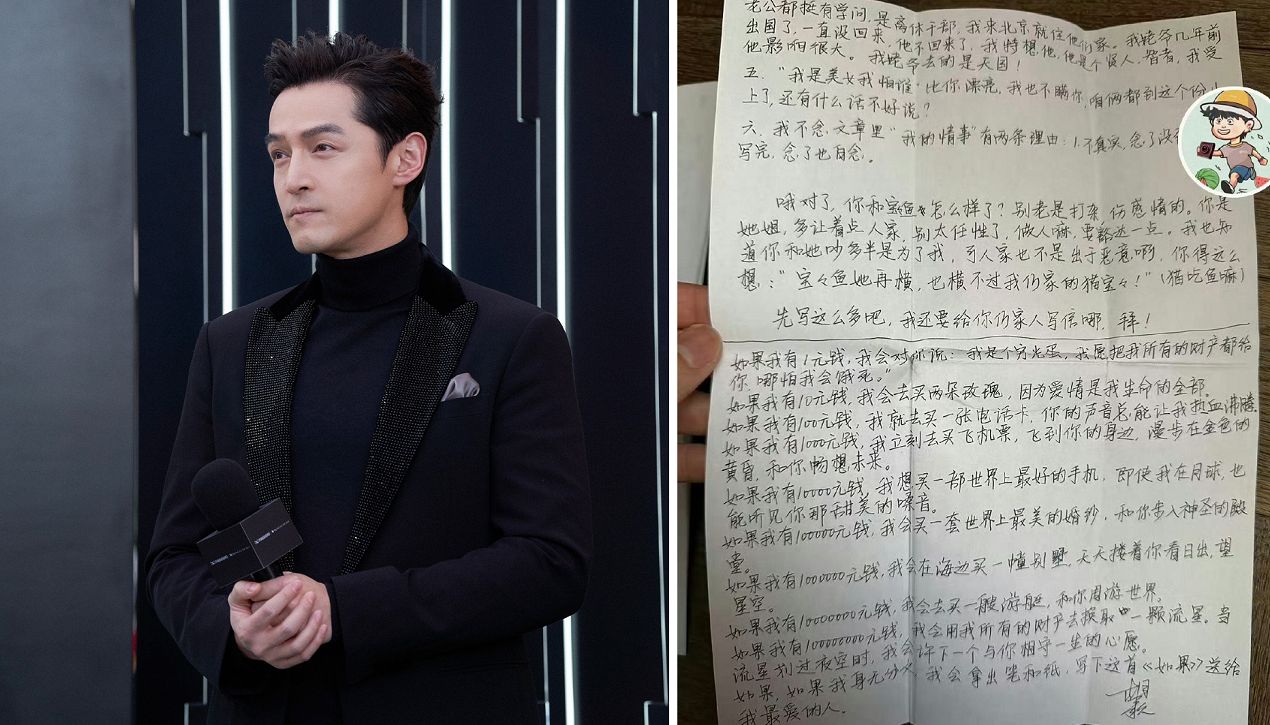 老公都挺有学问，是离休干部，我来北京就住他们家。我姥爷几年前
出国了，一直没回来，他不回来了，我特想他，他是个贤人、智者，我受
他影响很大。我姥爷去的是天国！
五．“我是美女我怕谁”比你漂亮，我也不瞒你，咱俩都到这个份
上了，还有什么话不好说？
六．我不念文章里“我的情事”有两条理由：1.不真实，念了没
写完，念了也白念。
哦对了，你和宝鱼怎么样了？别老是打架，伤感情的。你是
她姐，多让着点人家，别太任性了，做人嘛，要豁达一点。我也知
道你和她吵多半是为了我，可人家也不是出于恶意啊，你得这么
想：“宝宝鱼她再横，也横不过我们家的猫宝宝！”（猫吃鱼嘛）
先写这么多吧，我还要给你们家人写信哪，拜！
如果我有1元钱，我会对你说：我是个穷光蛋，我愿把我所有的财产都给
你，哪怕我会饿死。”
如果我有10元钱，我会去买两朵玫瑰，因为爱情是我生命的全部。
如果我有100元钱，我就去买一张电话卡，你的声音总能让我热血沸腾。
如果我有1000元钱，我立刻去买飞机票，飞到你的身边，漫步在金色的
黄昏，和你畅想未来。
如果我有10000元钱，我想买一部世界上最好的手机，即使我在月球，也
能听见你那甜美的嗓音。
如果我有100000元钱，我会买一套世界上最美的婚纱，和你步入神圣的殿
堂。
如果我有1000000元钱，我会在海边买一幢别墅，天天搂着你看日出，望
星空。
如果我有10000000元钱，我会去买一艘游艇，和你周游世界。
如果我有100000000元钱，我会用我所有的财产去换取一颗流星。当
流星划过夜空时，我会许下一个与你相守一生的心愿。
如果，如果我身无分文，我会拿出笔和纸，写下这首《如果》送给
我最爱的人。